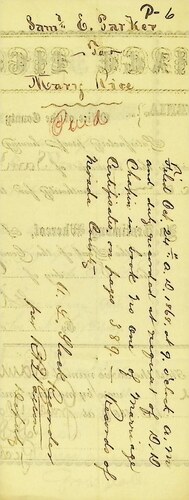 P-6
Saml. E. Parker
To
Mary Rice
Filed
Filed Oct 24th A.D. 1869, at 9 O'clock A.M.
and duly recorded at request of W.W.
Chapin in book No one of Marriage
Certificates on pages 389 Records of
Nevada County
Recorder
per
Deputy